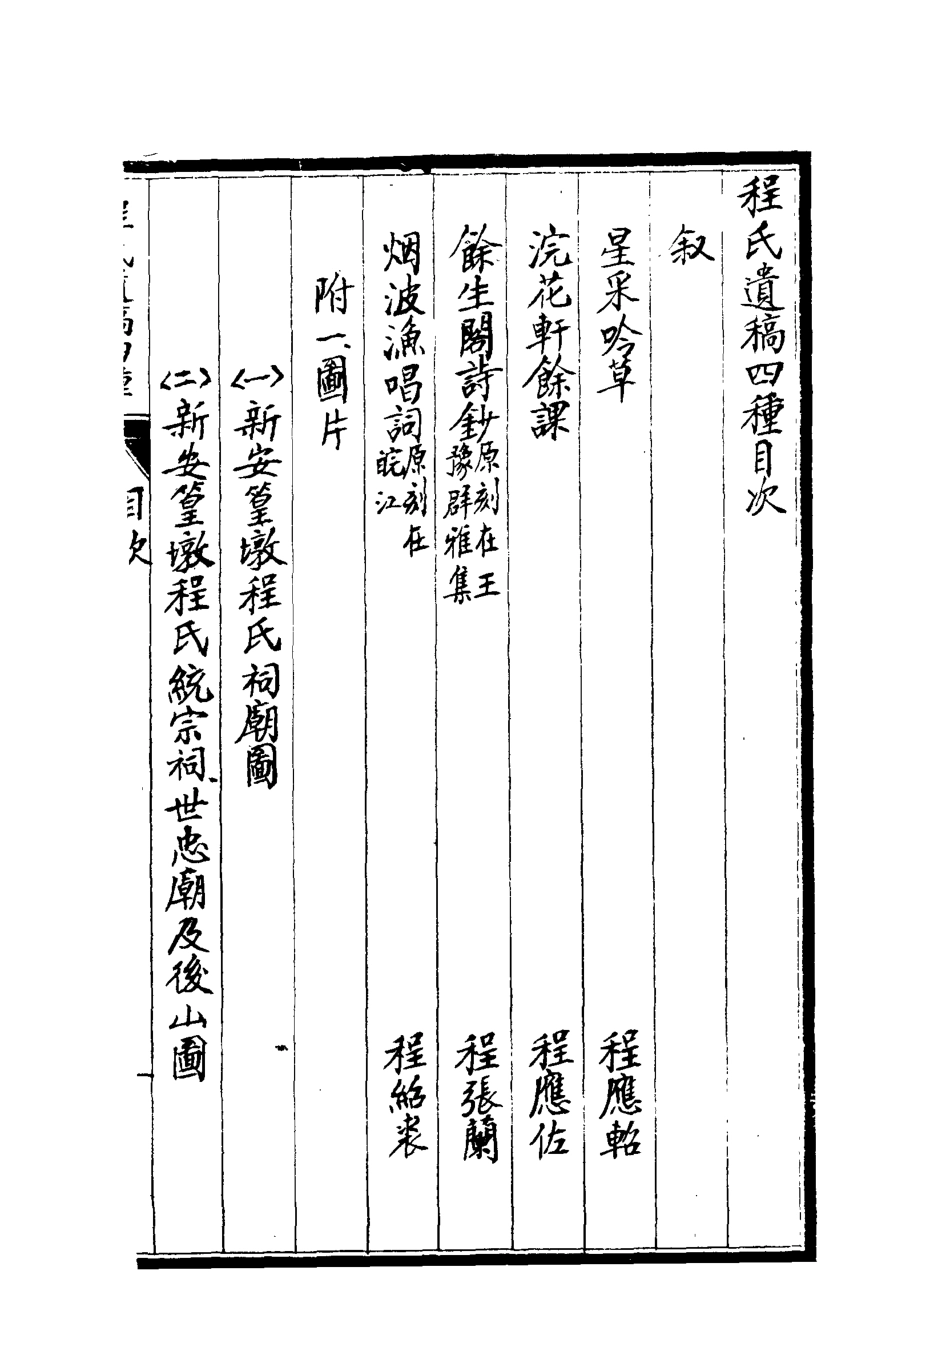 程氏遺稿四種目次
叙
星采吟草 程應軺
浣花軒餘課 程應佐
餘生閣詩鈔 原刻在王豫群雅集 程張蘭
烟波漁唱詞 原刻在皖江 程紹裘
附一、圖片
〈一〉新安篁墩程氏祠廟圖
〈二〉新安篁墩程氏統宗祠、世忠廟及後山圖
目次